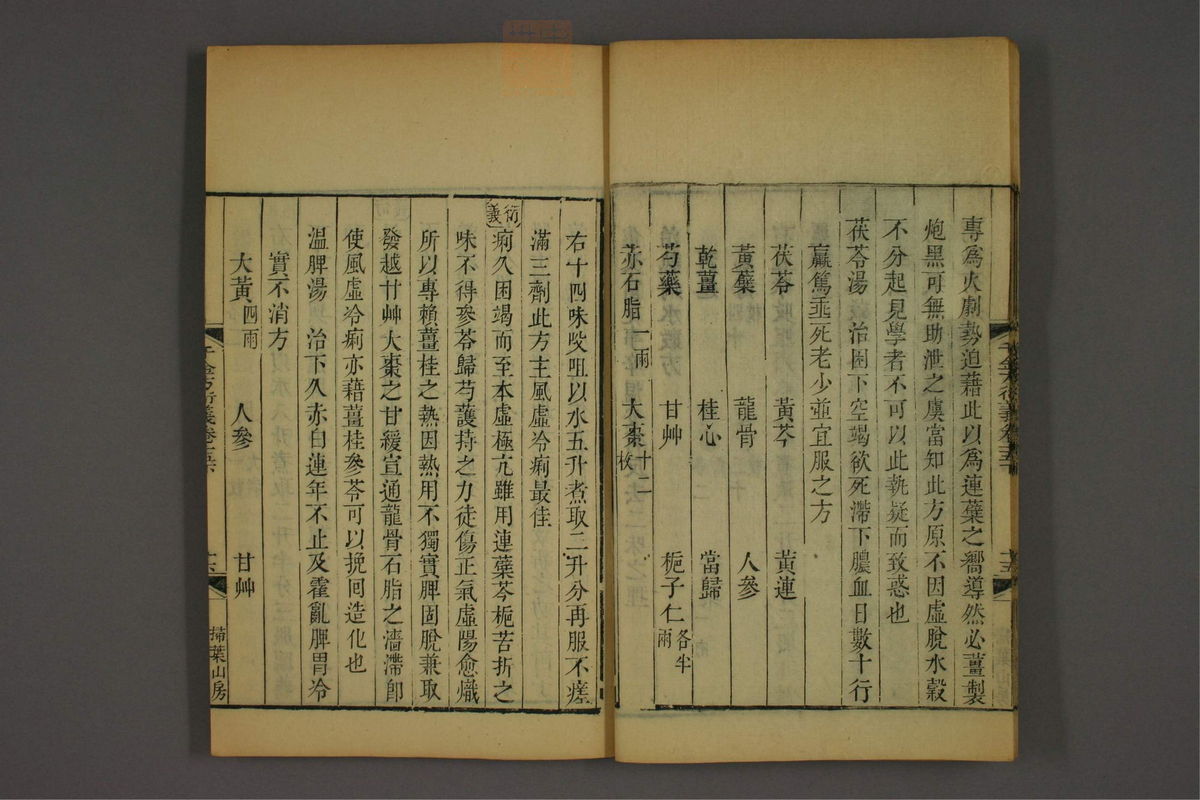 專爲火劇勢迫藉此以爲連蘗之嚮導然必薑製
炮黑可無助泄之虞當知此方原不因虛脫水穀
不分起見學者不可以此執疑而致惑也
茯苓湯 治困下空竭欲死滯下膿血日數十行
羸篤垂死老少並宜服之方
茯苓 黃芩 黃連
黃蘗 龍骨 人參
乾薑 桂心 當歸
芍藥 甘艸 梔子仁各半兩
赤石脂一兩 大棗十二枚
右十四味㕮咀以水五升煮取二升分再服不瘥
滿三劑此方主風虛冷痢最佳
衍義 痢久困竭而至本虛極亢雖用連蘗芩梔苦折之
味不得參苓歸芍護持之力徒傷正氣虛陽愈熾
所以專賴薑桂之熱因熱用不獨實脾固脫兼取
發越甘艸大棗之甘緩宣通龍骨石脂之濇滯卽
使風虛冷痢亦藉薑桂參苓可以挽囘造化也
溫脾湯 治下久赤白連年不止及霍亂脾胃冷
實不消方
大黃四兩 人參 甘艸
千金方衍義卷十五
十六
掃葉山房